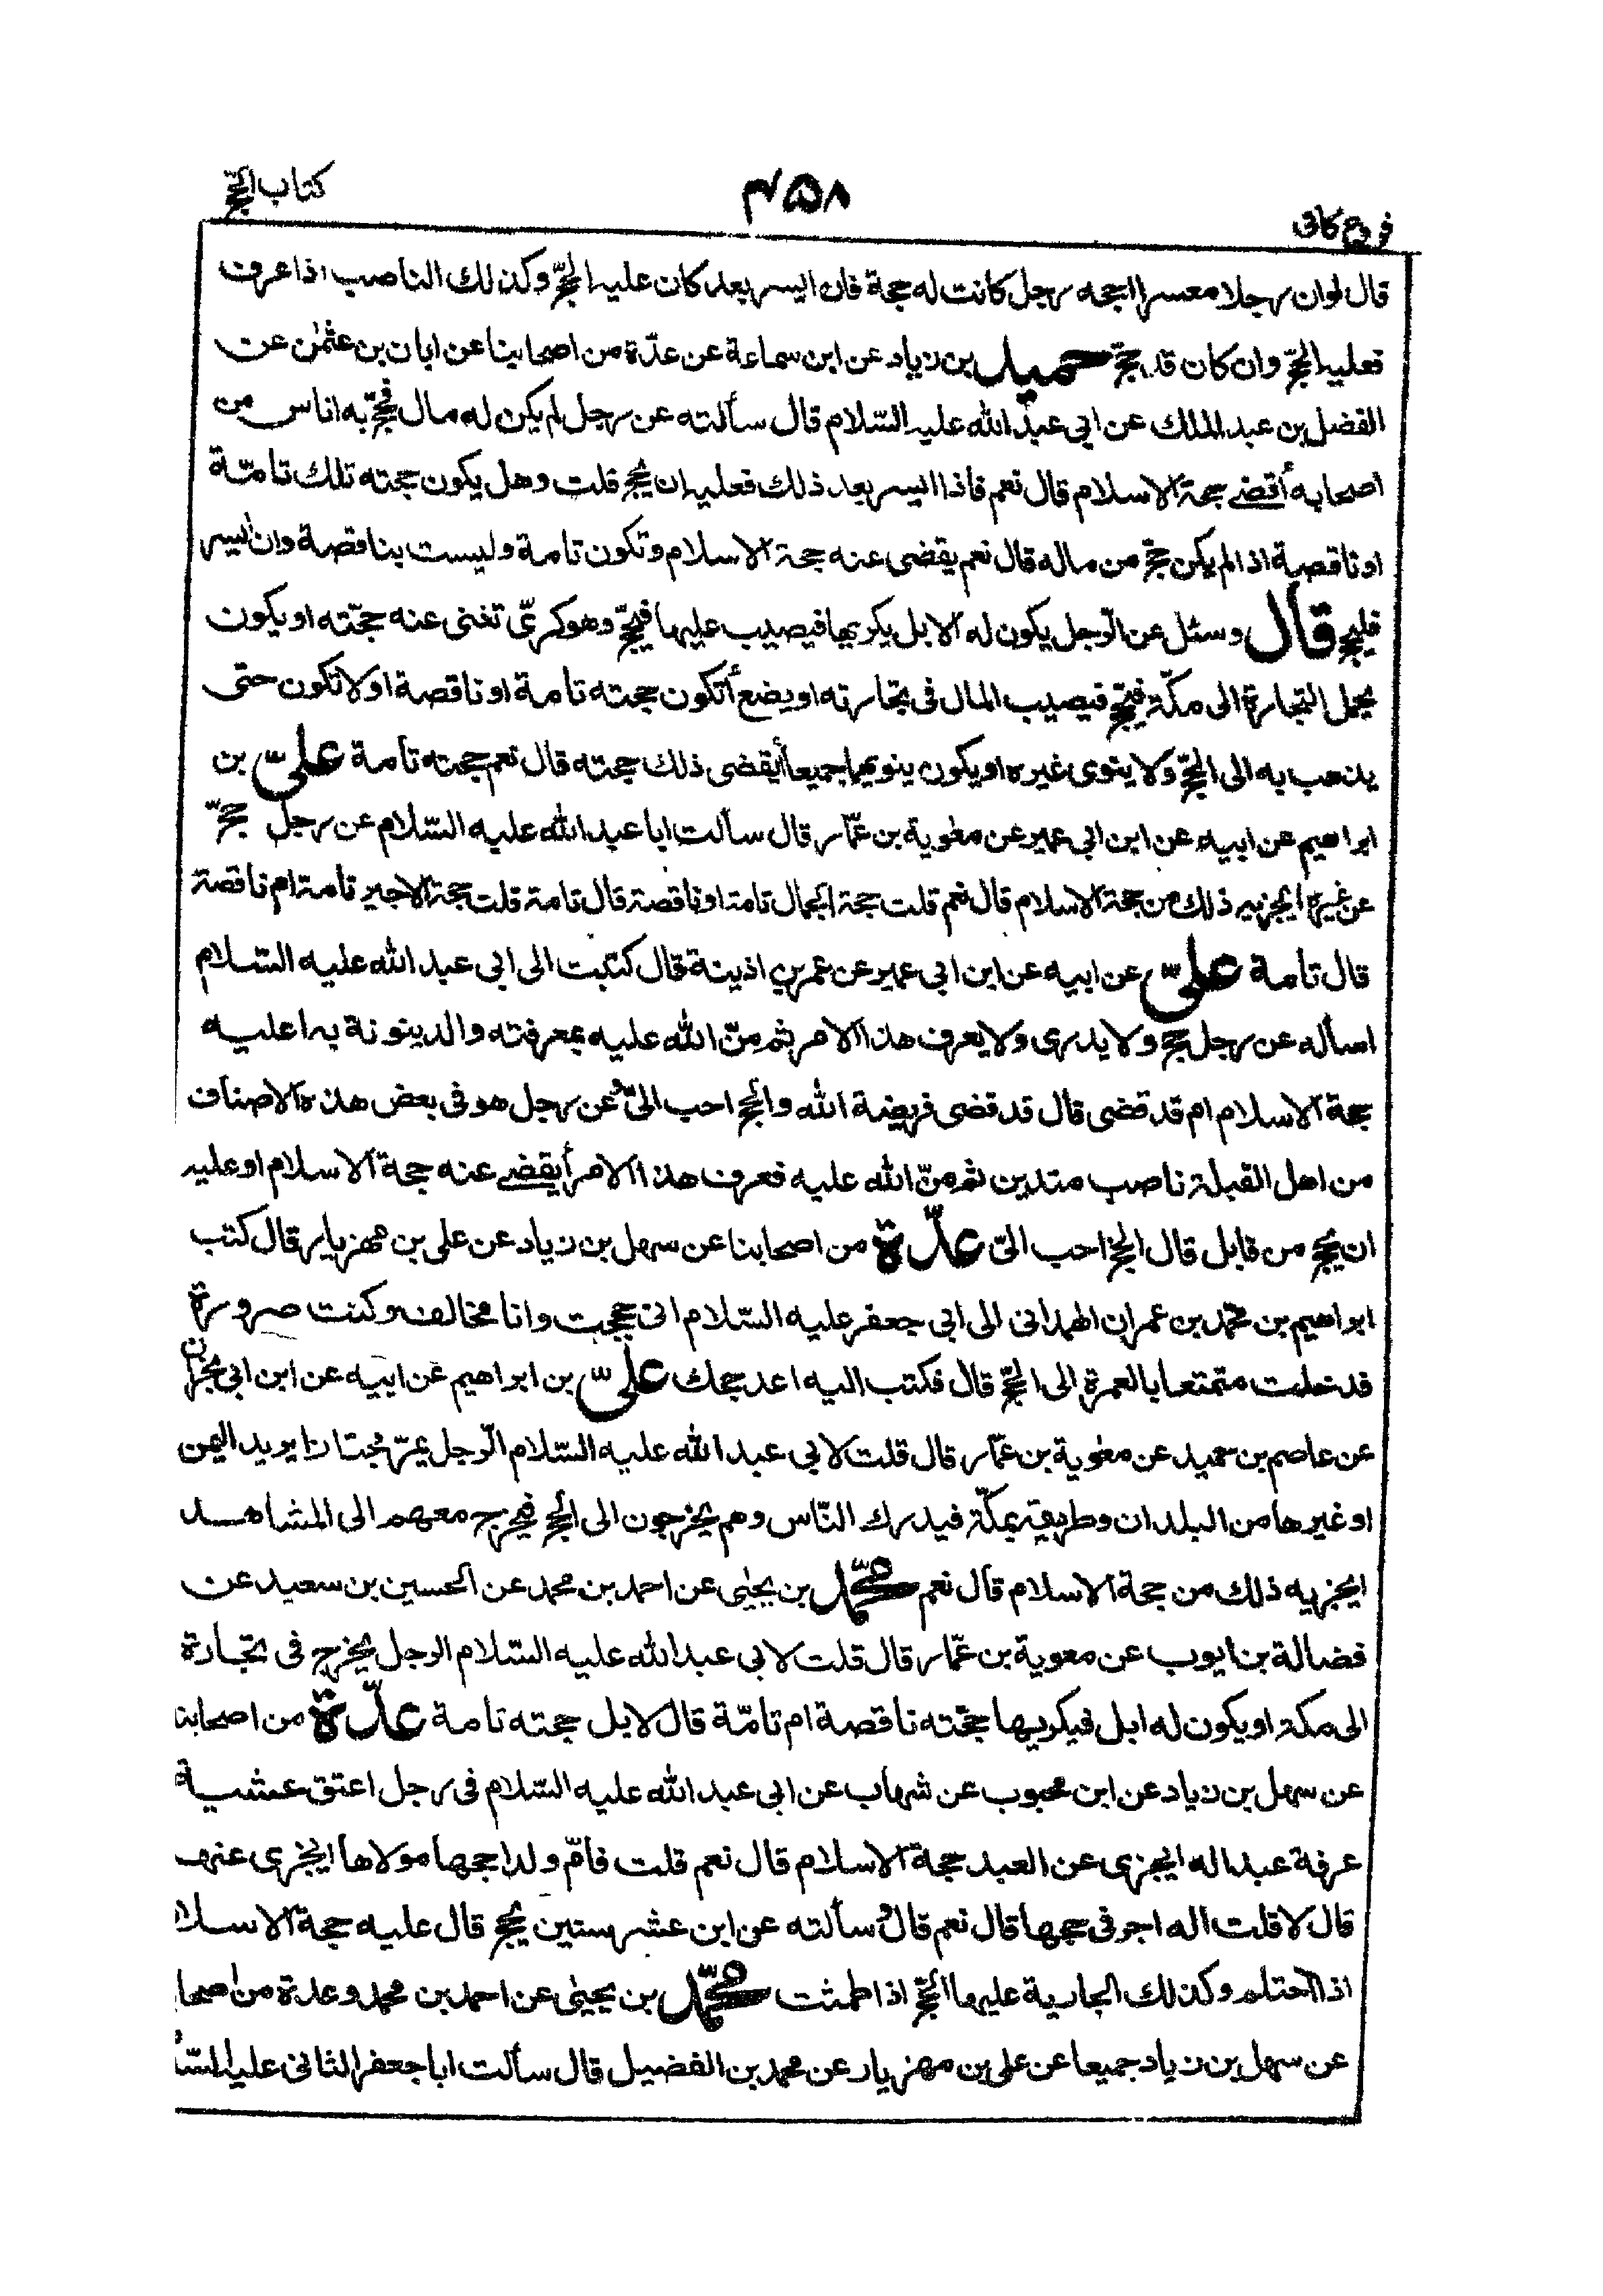 كتاب الحجّ
۴۵۸
فروع كافى
قال لوان رجلا معسرا احجه رجل كانت له حجة فان ايسر بعد كان عليه الحجّ وكذلك الناصب اذا عرف
فعليه الحجّ وان كان قد حجّ حميد بن زياد عن ابن سماعة عن عدّة من اصحابنا عن ابان بن عثمٰن عن
الفضل بن عبد الملك عن ابى عبد الله عليه السّلام قال سألته عن رجل لم يكن له مال فحجّ به اناس من
اصحابه أقضى حجة الاسلام قال نعم فاذا ايسر بعد ذلك فعليه ان يحج قلت وهل يكون حجته تلك تامّة
او ناقصة اذا لم يكن حجّ من ماله قال نعم يقضى عنه حجة الاسلام وتكون تامة وليست بناقصة وان ايسر
فليحج قال وسئل عن الرّجل يكون له الابل يكريها فيصيب عليها فيحجّ وهو كرىّ تغنى عنه حجّته او يكون
يحمل التجارة الى مكّة فيحجّ فيصيب المال فى تجارته او يضع أتكون حجته تامة او ناقصة او لا تكون حتى
يذهب به الى الحجّ ولا ينوى غيره او يكون ينويهما جميعا أيقضى ذلك حجته قال نعم حجته تامة علىّ بن
ابراهيم عن ابيه عن ابن ابى عمير عن معٰوية بن عمّار قال سألت ابا عبد الله عليه السّلام عن رجل حجّ
عن غيره ايجزيه ذلك من حجة الاسلام قال نعم قلت حجة الجمال تامة او ناقصة قال تامة قلت حجة الاجير تامة ام ناقصة
قال تامة علىّ عن ابيه عن ابن ابى عمير عن عمر بن اذينة قال كتبت الى ابى عبد الله عليه السّلام
اسأله عن رجل حج ولا يدرى ولا يعرف هذا الامر ثم منّ الله عليه بمعرفته والدينونة به اعليه
حجة الاسلام ام قد قضى قال قد قضى فريضة الله والحج احب الىّ وعن رجل هو فى بعض هذه الاصناف
من اهل القبلة ناصب متدين ثم منّ الله عليه فعرف هذا الامر أيقضى عنه حجة الاسلام او عليه
ان يحج من قابل قال الحجّ احب الىّ عدّة من اصحابنا عن سهل بن زياد عن على بن مهزيار قال كتب
ابراهيم بن محمّد بن عمران الهمدانى الى ابى جعفر عليه السّلام انى حججت وانا مخالف وكنت صرورة
فدخلت متمتعا بالعمرة الى الحجّ قال فكتب اليه اعد حجك علىّ بن ابراهيم عن ابيه عن ابن ابى نجران
عن عاصم بن حميد عن معٰوية بن عمّار قال قلت لابى عبد الله عليه السّلام الرّجل يمرّ مجتازا يريد اليمن
او غيرها من البلدان وطريقه بمكّة فيدرك النّاس وهم يخرجون الى الحج فيخرج معهم الى المشاهد
ايجزيه ذلك من حجة الاسلام قال نعم محمّد بن يحيٰى عن احمد بن محمد عن الحسين بن سعيد عن
فضالة بن ايوب عن معوية بن عمّار قال قلت لابى عبد الله عليه السّلام الرجل يخرج فى تجارة
الى مكة او يكون له ابل فيكريها حجّته ناقصة ام تامّة قال لا بل حجته تامة عدّة من اصحابنا
عن سهل بن زياد عن ابن محبوب عن شهاب عن ابى عبد الله عليه السّلام فى رجل اعتق عشية
عرفة عبدا له ايجزى عن العبد حجة الاسلام قال نعم قلت فامّ ولد احجها مولاها ايجزى عنها
قال لا قلت اله اجر فى حجها قال نعم قال وسألته عن ابن عشر سنين يحج قال عليه حجة الاسلا
اذا احتلم وكذلك الجارية عليها الحجّ اذا طمثت محمّد بن يحيىٰ عن احمد بن محمد وعدة من اصحا
عن سهل بن زياد جميعا عن على بن مهزيار عن محمد بن الفضيل قال سألت ابا جعفر الثانى عليه السّلا